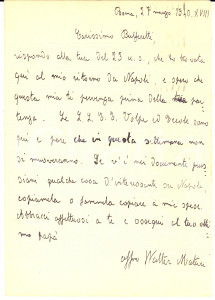 Roma, 27 marzo 1940. XVIII
Carissimo
rispondo alla tua del 23 u. s., che ho trovata
qui al mio ritorno da Napoli, e spero che
questa mia ti pervenga prima della par-
tenza. Le LL. EE. Volpe ed Ercole sono
qui e pare che in questa settimana non
si muoveranno. Se c'è nei documenti prus-
siani qualche cosa d'interessante su Napoli,
copiamela o fammela copiare a mie spese.
Abbracci affettuosi a te e ossequi al tuo otti-
mo papà
aff.mo Walter Maturi